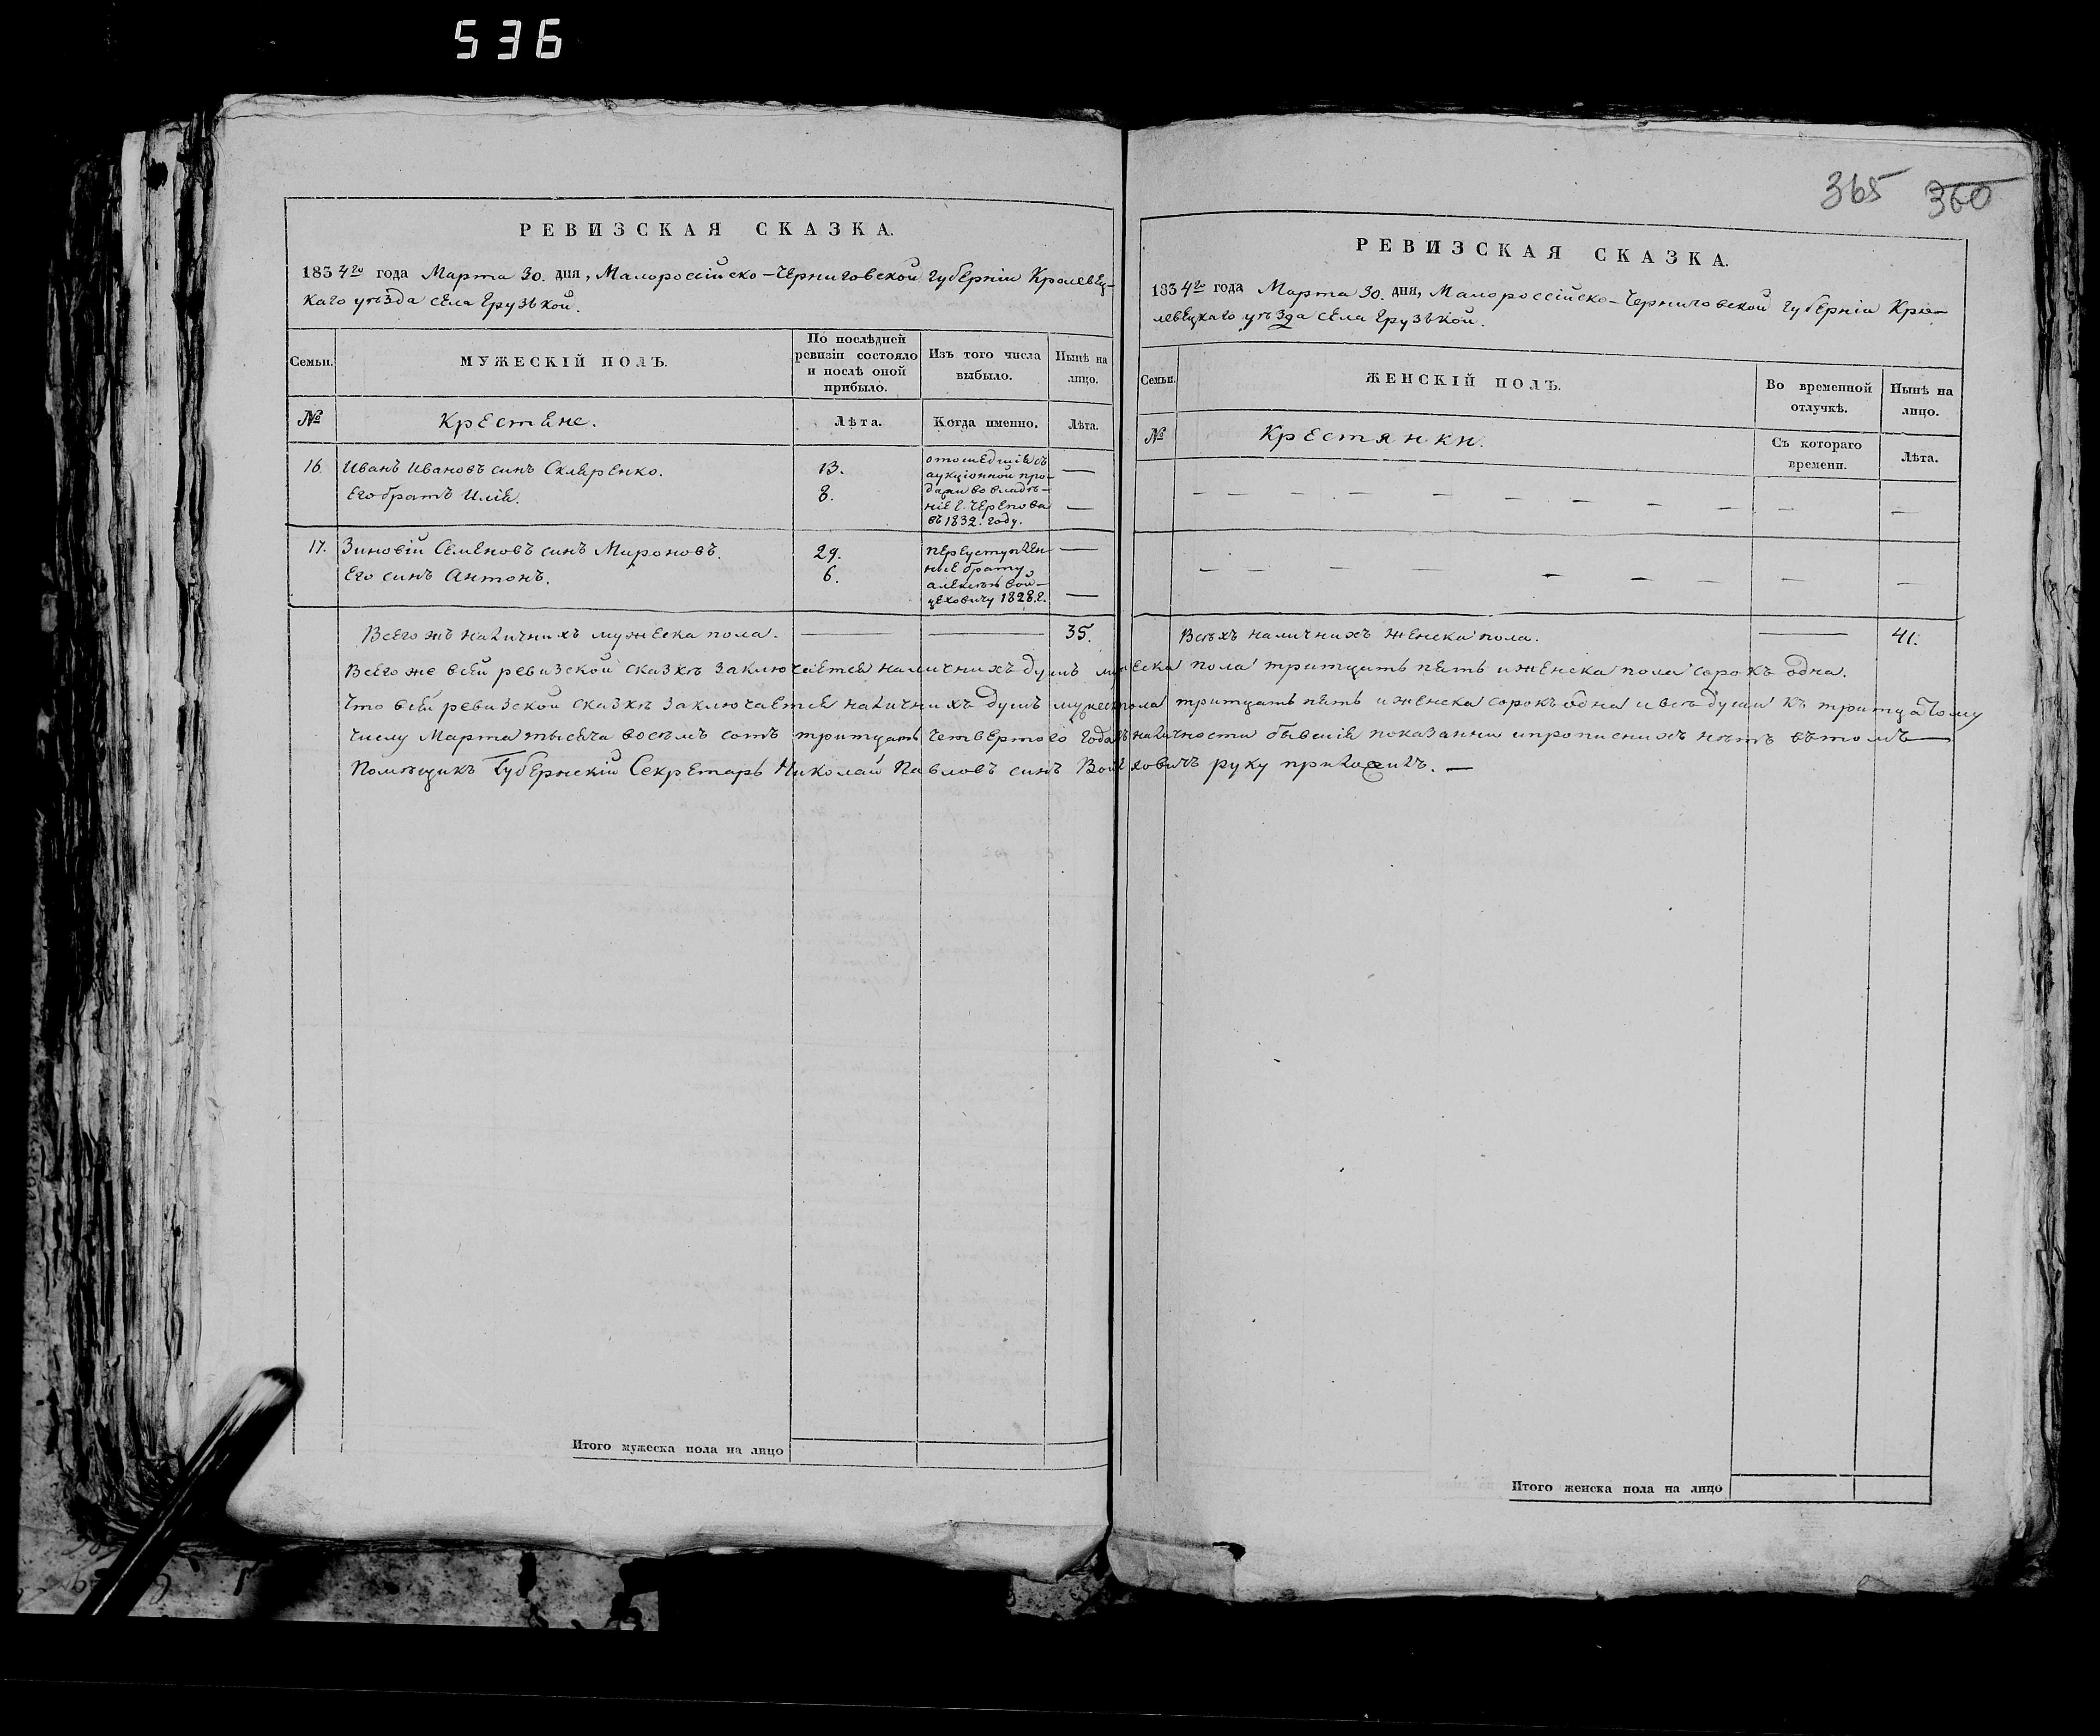 536
365 360
РЕВИЗСКАЯ СКАЗКА.
1834го года Марта 30. дня, Малороссійско-Черниговской губерніи Кролевец-
каго уѣзда села Грузькой.
Семьи.
МУЖЕСКІЙ ПОЛЪ.
По послѣдней
ревизіи состояло
и послѣ оной
прибыло.
Изъ того числа
выбыло.
Нынѣ на
лицо.
№
Крестяне.
Лѣта.
Когда именно.
Лѣта.
16. Иванъ Ивановъ синъ Скляренко. 13. —
Его братъ Илія. 8. —
отошедшіе съ
аукціонной про-
дажи во владѣ-
ніе Г. Черепова
въ 1832. году.
17. Зиновій Семеновъ синъ Мироновъ. 29. —
Его синъ Антонъ. 6. —
переуступлен-
ные брату
Алексѣю Вой-
цеховичу 1828.г.
Всего жъ наличнихъ мужеска пола. — — 35.
РЕВИЗСКАЯ СКАЗКА.
1834го года Марта 30. дня, Малороссійско-Черниговской губерніи Кро-
левецкаго уѣзда села Грузькой.
Семьи.
ЖЕНСКІЙ ПОЛЪ.
Во временной
отлучкѣ.
Нынѣ на
лицо.
№
Крестянки.
Съ котораго
времени.
Лѣта.
— — — — — — — — — —
— — — — — — — —
Всѣхъ наличнихъ женска пола. — 41.
Всего же всей ревизской сказкѣ заключается наличнихъ душъ мужеска пола тритцать пять и женска пола сорокъ одна.
Что всей ревизской сказкѣ заключается наличнихъ душъ мужеска пола тритцать пять и женска сорокъ одна и всѣ души къ тритцатому
числу Марта тысяча восемъ сотъ тритцать четвертого года въ наличности бывшія показанни и прописнихъ нѣтъ въ томъ —
Помѣщикъ Губернскій Секретарь Николай Павловъ синъ Войцеховичъ руку приложилъ. —
Итого мужеска пола на лицо
Итого женска пола на лицо